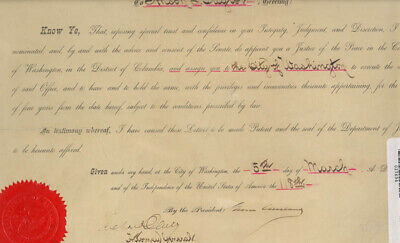 To
Greeting:
Know Ye, That, reposing special trust and confidence in your Integrity, Judgment, and Discretion, I
nominated, and, by and with the advice and consent of the Senate, do appoint you a Justice of the Peace in the Ci
of Washington, in the District of Columbia, and assign you to the City of Washington to execute the
of said Office, and to have and to hold the same, with the privileges and emoluments thereunto appertaining, for the
of four years from the date hereof, subject to the conditions prescribed by law.
In testimony whereof, I have caused these Letters to be made Patent and the seal of the Department of J
to be hereunto affixed.
Given under my hand, at the City of Washington, the 5th day of March A. D
and of the Independence of the United States of America the
By the President:
Attorney General.